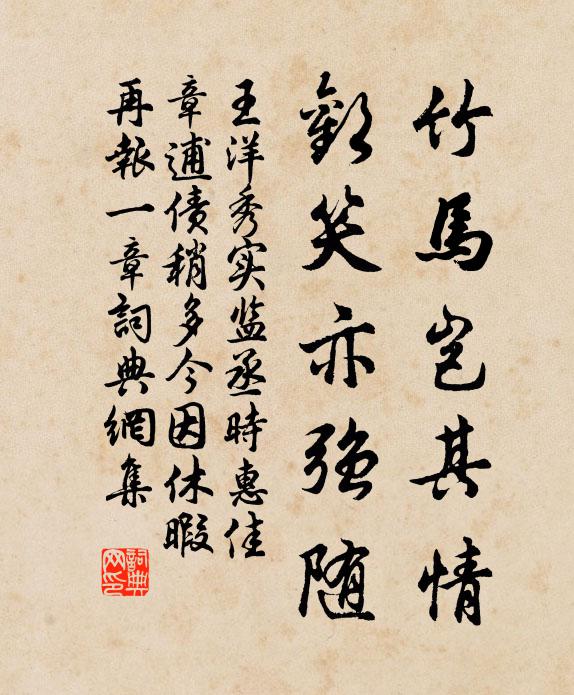 竹馬豈其情
歡笑亦強随
王洋秀实监丞時惠佳
章逋债稍多今因休暇
再報一章詞典網集
詞典
网印